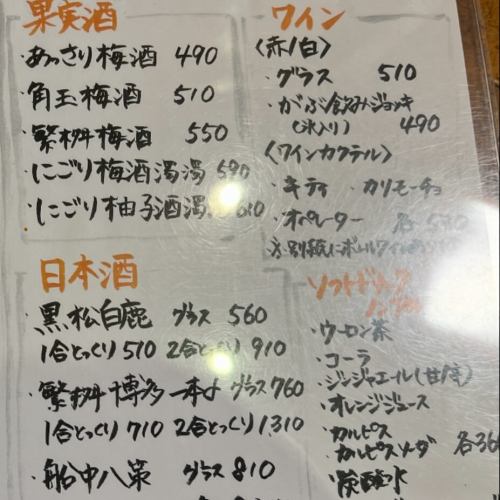 果実酒
・あっさり梅酒 490
・角玉梅酒 510
・繁桝梅酒 550
・にごり梅酒濁濁 590
・にごり柚子酒濁 610
日本酒
・黒松白鹿 グラス 560
1合とっくり 510 2合とっくり 910
・繁桝 博多一本〆 グラス 760
1合とっくり 710 2合とっくり 1,310
・船中八策 グラス 810
ワイン
〈赤/白〉
・グラス 510
・がぶ飲みジョッキ
(氷入り) 490
〈ワインカクテル〉
・キティ ・カリモーチョ
・オペレーター 各530
※別紙にボトルワインあります
ソフトドリンク
・ウーロン茶
・コーラ
・ジンジャエール(甘/辛)
・オレンジジュース
・カルピス
・カルピスソーダ 各36
・炭酸水